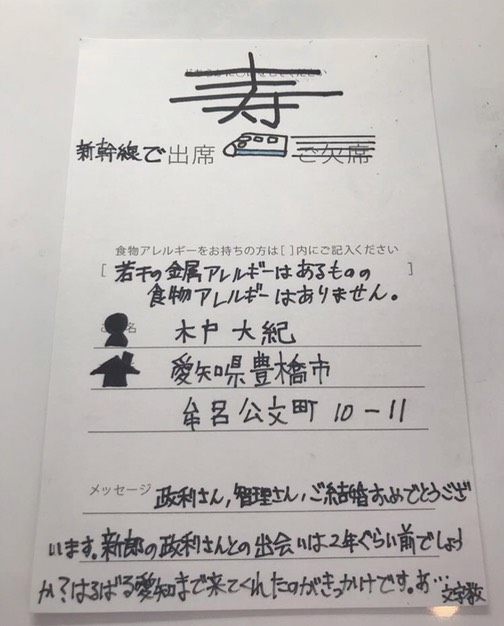 寿
新幹線で出席 ご欠席
食物アレルギーをお持ちの方は[ ]内にご記入ください
[ 若干の金属アレルギーはあるものの ]
食物アレルギーはありません。
名 木戸 大紀
愛知県豊橋市
牟呂公文町 10-11
メッセージ 政利さん,智理さん,ご結婚おめでとうござ
います。新郎の政利さんとの出会いは2年ぐらい前でしょう
か?はるばる愛知まで来てくれたのがきっかけです。あ…文字数